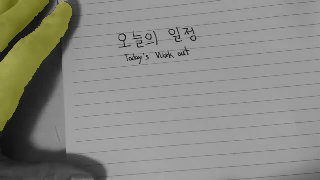 오늘의 일정
Today's Work out